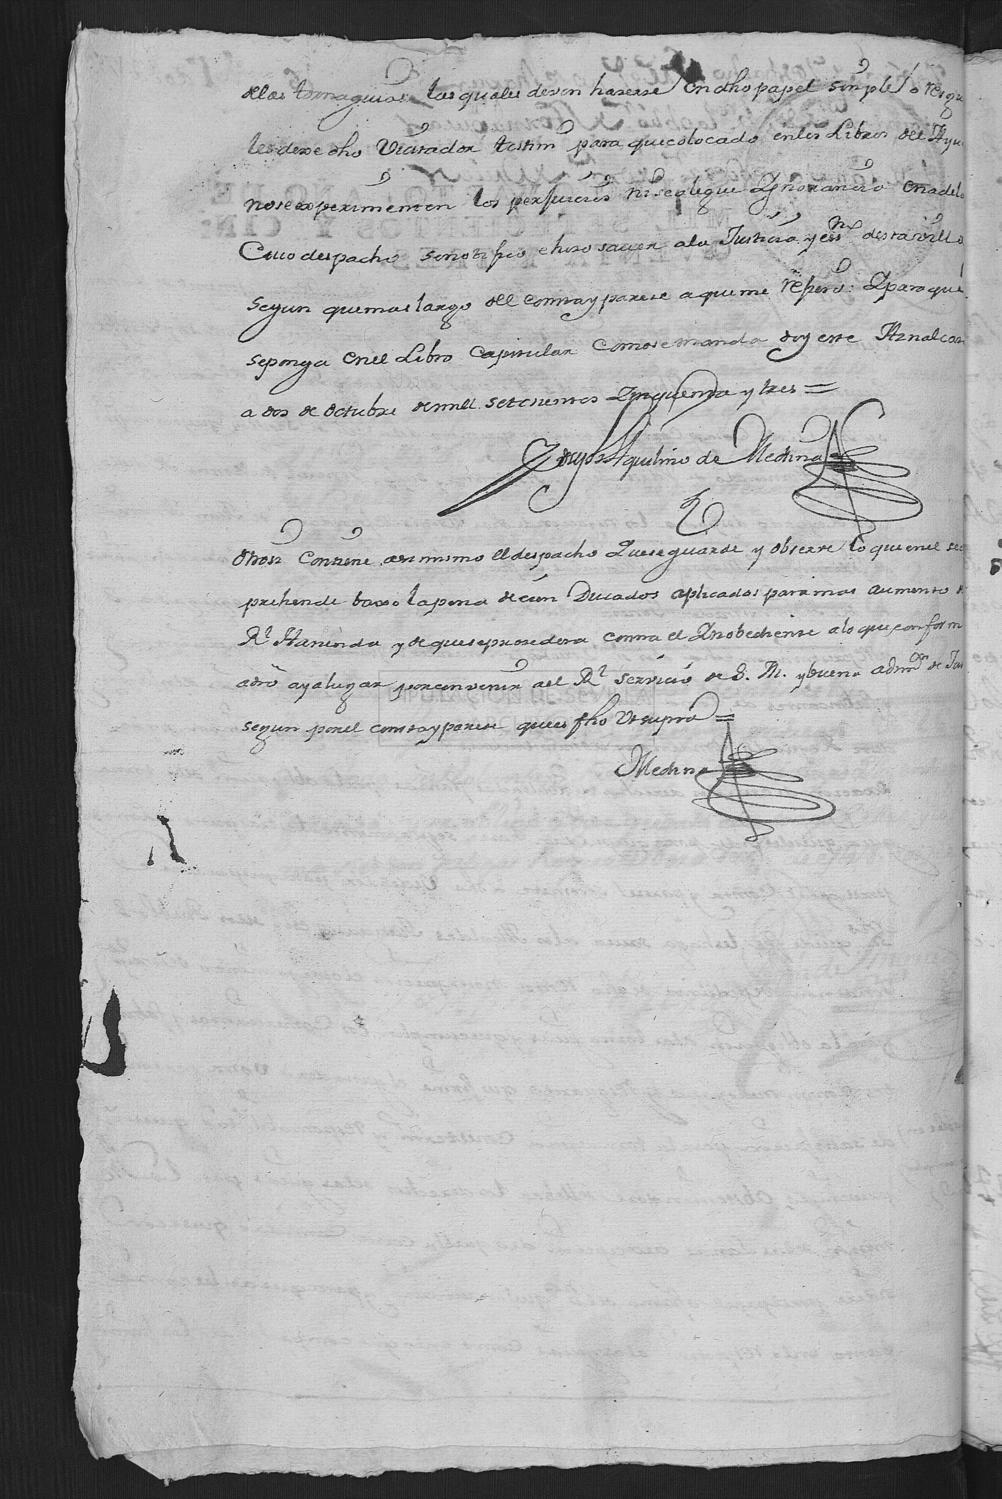 de las tornaguias las quales deven haserse en dho papel simple o
les dexe dho Visitador testimº para que colocado en los Libros del Ayu
no se experimenten los perjuicios ni se alegue Ygnorancia en adel
Cuio despacho se notifico e hizo saver a la Justicia y essnº de esta villa
segun que mas largo del consta y parese a que me refiero: Y para que
se ponga en el Libro Capitular como se manda doy este Aznalcas
a dos de octubre de mill setesientos Zinquenta y tres =
Aquilino de Medina
Otrosi Contiene asi mismo el despacho Que se guarde y observe lo que en el se
prehende baxo la pena de cien Ducados aplicados para mas aumento
Rl Hasienda y de que se prosedera contra el Ynobediente a lo que conform
a dro aya lugar por convenir asi al Rl servicio de S. M. y buena admon de
segun por el consta y parese que es fho Ut supra =
Medina
DIPUTACION DE SEVILLA